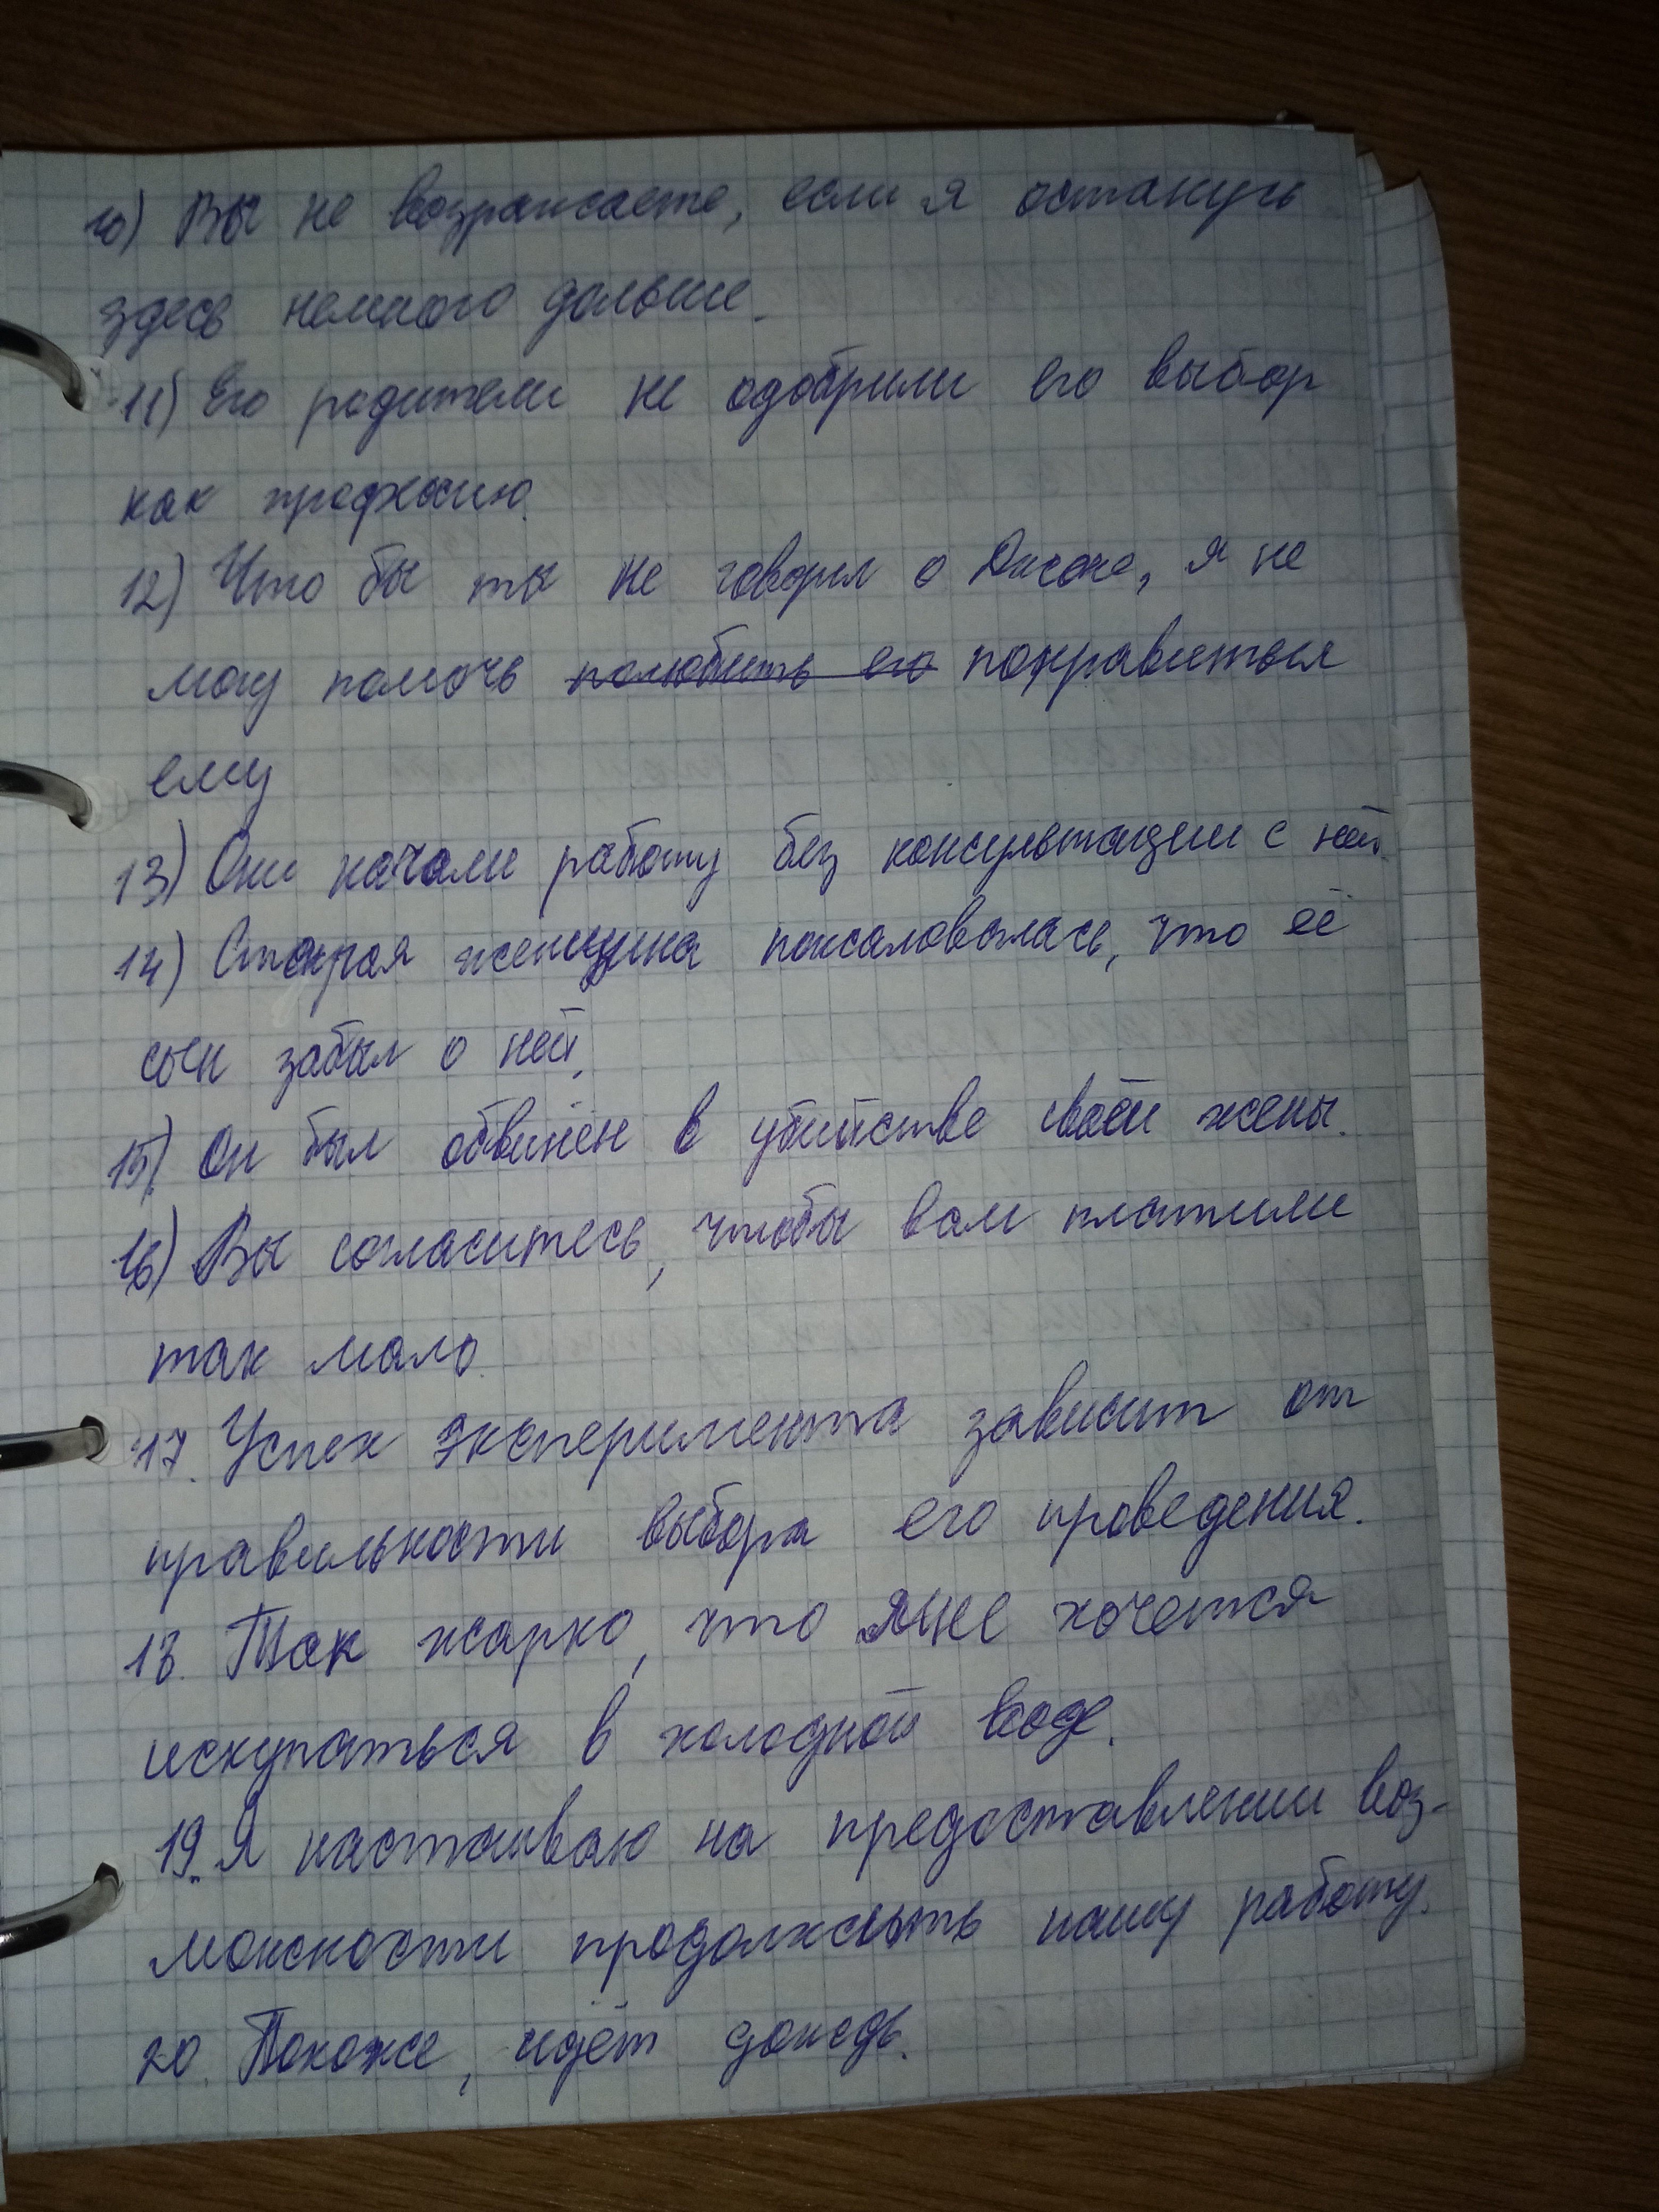 10) Вы не возражаете, если я останусь
здесь немного дольше.
11) Его родители не одобрили его выбор
как профессию.
12) Что бы ты не говорил о Джоне, я не
могу помочь полюбить его понравиться
ему
13) Они начали работу без консультации с ней.
14) Старая женщина пожаловалась, что её
сын забыл о ней.
15) Он был обвинён в убийстве своей жены.
16) Вы согласитесь, чтобы вам платили
так мало.
17. Успех эксперимента зависит от
правильности выбора его проведения.
18. Так жарко, что мне хочется
искупаться в холодной воде.
19. Я настаиваю на предоставлении воз-
можности продолжить нашу работу.
20. Похоже, идёт дождь.